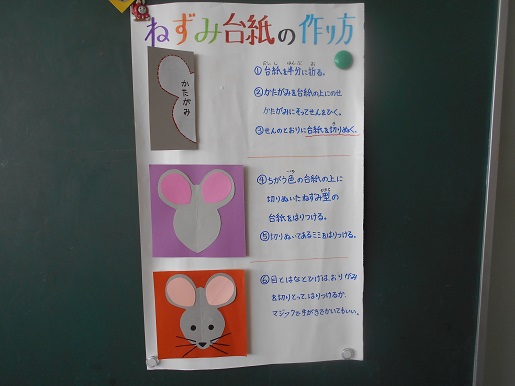 ねずみ台紙の作り方
かたがみ
①台紙を半分に折る。
②かたがみを台紙の上にのせ
かたがみにそってせんをひく。
③せんのとおりに台紙を切りぬく。
④ちがう色の台紙の上に
切りぬいたねずみ型の
台紙をはりつける。
⑤切りぬいてあるミミをはりつける。
⑥目とはなとひげは、おりがみ
を切りとって、はりつけるか、
マジックで手がきでかいてもいい。